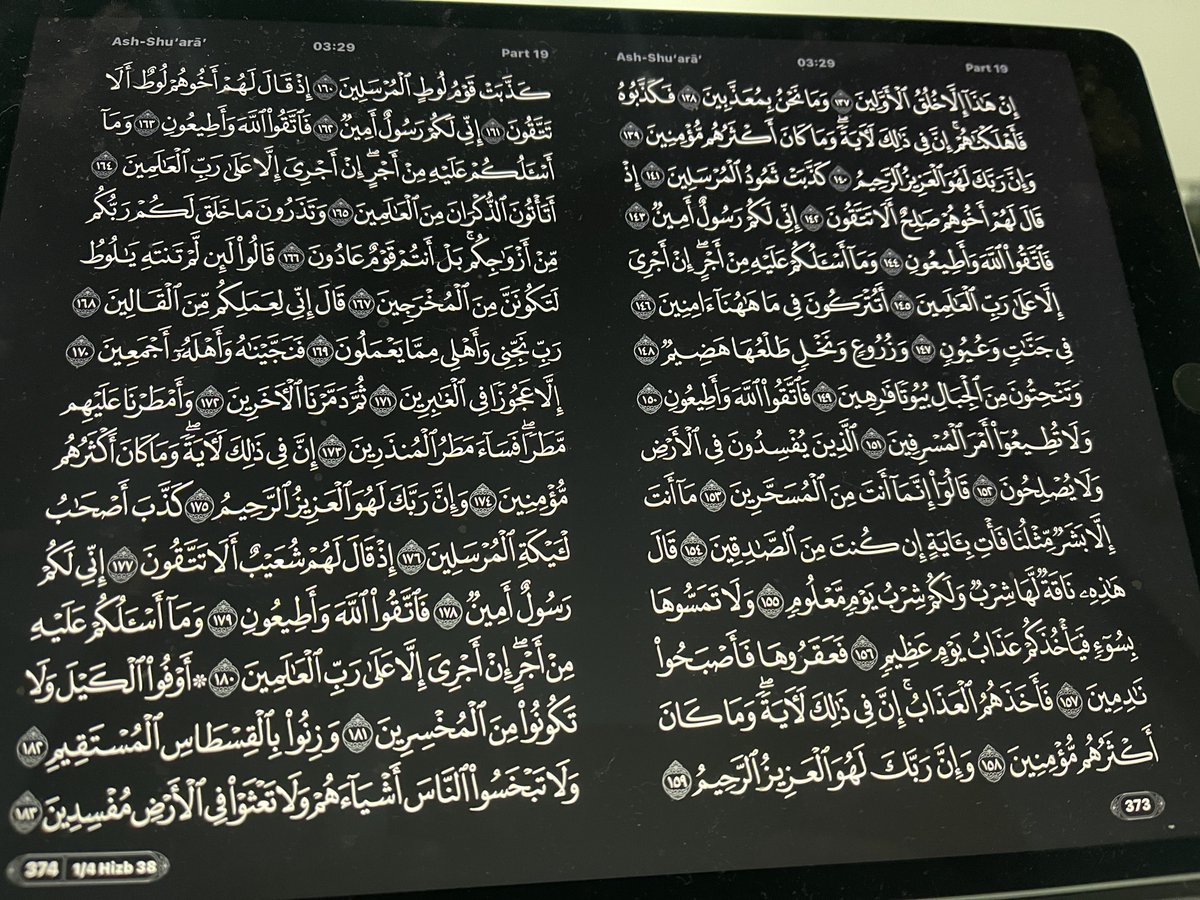 Ash-Shu‘arā’ 03:29 Part 19
إِنْ هَٰذَآ إِلَّا خُلُقُ ٱلْأَوَّلِينَ ١٣٧ وَمَا نَحْنُ بِمُعَذَّبِينَ ١٣٨ فَكَذَّبُوهُ
فَأَهْلَكْنَٰهُمْ ۗ إِنَّ فِى ذَٰلِكَ لَءَايَةً ۖ وَمَا كَانَ أَكْثَرُهُم مُّؤْمِنِينَ ١٣٩
وَإِنَّ رَبَّكَ لَهُوَ ٱلْعَزِيزُ ٱلرَّحِيمُ ١٤٠ كَذَّبَتْ ثَمُودُ ٱلْمُرْسَلِينَ ١٤١ إِذْ
قَالَ لَهُمْ أَخُوهُمْ صَٰلِحٌ أَلَا تَتَّقُونَ ١٤٢ إِنِّى لَكُمْ رَسُولٌ أَمِينٌ ١٤٣
فَٱتَّقُوا۟ ٱللَّهَ وَأَطِيعُونِ ١٤٤ وَمَآ أَسْـَٔلُكُمْ عَلَيْهِ مِنْ أَجْرٍ ۖ إِنْ أَجْرِىَ
إِلَّا عَلَىٰ رَبِّ ٱلْعَٰلَمِينَ ١٤٥ أَتُتْرَكُونَ فِى مَا هَٰهُنَآ ءَامِنِينَ ١٤٦
فِى جَنَّٰتٍ وَعُيُونٍ ١٤٧ وَزُرُوعٍ وَنَخْلٍ طَلْعُهَا هَضِيمٌ ١٤٨
وَتَنْحِتُونَ مِنَ ٱلْجِبَالِ بُيُوتًا فَٰرِهِينَ ١٤٩ فَٱتَّقُوا۟ ٱللَّهَ وَأَطِيعُونِ ١٥٠
وَلَا تُطِيعُوٓا۟ أَمْرَ ٱلْمُسْرِفِينَ ١٥١ ٱلَّذِينَ يُفْسِدُونَ فِى ٱلْأَرْضِ
وَلَا يُصْلِحُونَ ١٥٢ قَالُوٓا۟ إِنَّمَآ أَنتَ مِنَ ٱلْمُسَحَّرِينَ ١٥٣ مَآ أَنتَ
إِلَّا بَشَرٌ مِّثْلُنَا فَأْتِ بِـَٔايَةٍ إِن كُنتَ مِنَ ٱلصَّٰدِقِينَ ١٥٤ قَالَ
هَٰذِهِۦ نَاقَةٌ لَّهَا شِرْبٌ وَلَكُمْ شِرْبُ يَوْمٍ مَّعْلُومٍ ١٥٥ وَلَا تَمَسُّوهَا
بِسُوٓءٍ فَيَأْخُذَكُمْ عَذَابُ يَوْمٍ عَظِيمٍ ١٥٦ فَعَقَرُوهَا فَأَصْبَحُوا۟
نَٰدِمِينَ ١٥٧ فَأَخَذَهُمُ ٱلْعَذَابُ ۗ إِنَّ فِى ذَٰلِكَ لَءَايَةً ۖ وَمَا كَانَ
أَكْثَرُهُم مُّؤْمِنِينَ ١٥٨ وَإِنَّ رَبَّكَ لَهُوَ ٱلْعَزِيزُ ٱلرَّحِيمُ ١٥٩
373
Ash-Shu‘arā’ 03:29 Part 19
كَذَّبَتْ قَوْمُ لُوطٍ ٱلْمُرْسَلِينَ ١٦٠ إِذْ قَالَ لَهُمْ أَخُوهُمْ لُوطٌ أَلَا
تَتَّقُونَ ١٦١ إِنِّى لَكُمْ رَسُولٌ أَمِينٌ ١٦٢ فَٱتَّقُوا۟ ٱللَّهَ وَأَطِيعُونِ ١٦٣ وَمَآ
أَسْـَٔلُكُمْ عَلَيْهِ مِنْ أَجْرٍ ۖ إِنْ أَجْرِىَ إِلَّا عَلَىٰ رَبِّ ٱلْعَٰلَمِينَ ١٦٤
أَتَأْتُونَ ٱلذُّكْرَانَ مِنَ ٱلْعَٰلَمِينَ ١٦٥ وَتَذَرُونَ مَا خَلَقَ لَكُمْ رَبُّكُم
مِّنْ أَزْوَٰجِكُم ۚ بَلْ أَنتُمْ قَوْمٌ عَادُونَ ١٦٦ قَالُوا۟ لَئِن لَّمْ تَنتَهِ يَٰلُوطُ
لَتَكُونَنَّ مِنَ ٱلْمُخْرَجِينَ ١٦٧ قَالَ إِنِّى لِعَمَلِكُم مِّنَ ٱلْقَالِينَ ١٦٨
رَبِّ نَجِّنِى وَأَهْلِى مِمَّا يَعْمَلُونَ ١٦٩ فَنَجَّيْنَٰهُ وَأَهْلَهُۥٓ أَجْمَعِينَ ١٧٠
إِلَّا عَجُوزًا فِى ٱلْغَٰبِرِينَ ١٧١ ثُمَّ دَمَّرْنَا ٱلْءَاخَرِينَ ١٧٢ وَأَمْطَرْنَا عَلَيْهِم
مَّطَرًا ۖ فَسَآءَ مَطَرُ ٱلْمُنذَرِينَ ١٧٣ إِنَّ فِى ذَٰلِكَ لَءَايَةً ۖ وَمَا كَانَ أَكْثَرُهُم
مُّؤْمِنِينَ ١٧٤ وَإِنَّ رَبَّكَ لَهُوَ ٱلْعَزِيزُ ٱلرَّحِيمُ ١٧٥ كَذَّبَ أَصْحَٰبُ
لْـَٔيْكَةِ ٱلْمُرْسَلِينَ ١٧٦ إِذْ قَالَ لَهُمْ شُعَيْبٌ أَلَا تَتَّقُونَ ١٧٧ إِنِّى لَكُمْ
رَسُولٌ أَمِينٌ ١٧٨ فَٱتَّقُوا۟ ٱللَّهَ وَأَطِيعُونِ ١٧٩ وَمَآ أَسْـَٔلُكُمْ عَلَيْهِ
مِنْ أَجْرٍ ۖ إِنْ أَجْرِىَ إِلَّا عَلَىٰ رَبِّ ٱلْعَٰلَمِينَ ١٨٠ ۞ أَوْفُوا۟ ٱلْكَيْلَ وَلَا
تَكُونُوا۟ مِنَ ٱلْمُخْسِرِينَ ١٨١ وَزِنُوا۟ بِٱلْقِسْطَاسِ ٱلْمُسْتَقِيمِ ١٨٢
وَلَا تَبْخَسُوا۟ ٱلنَّاسَ أَشْيَآءَهُمْ وَلَا تَعْثَوْا۟ فِى ٱلْأَرْضِ مُفْسِدِينَ ١٨٣
374 1/4 Hizb 38